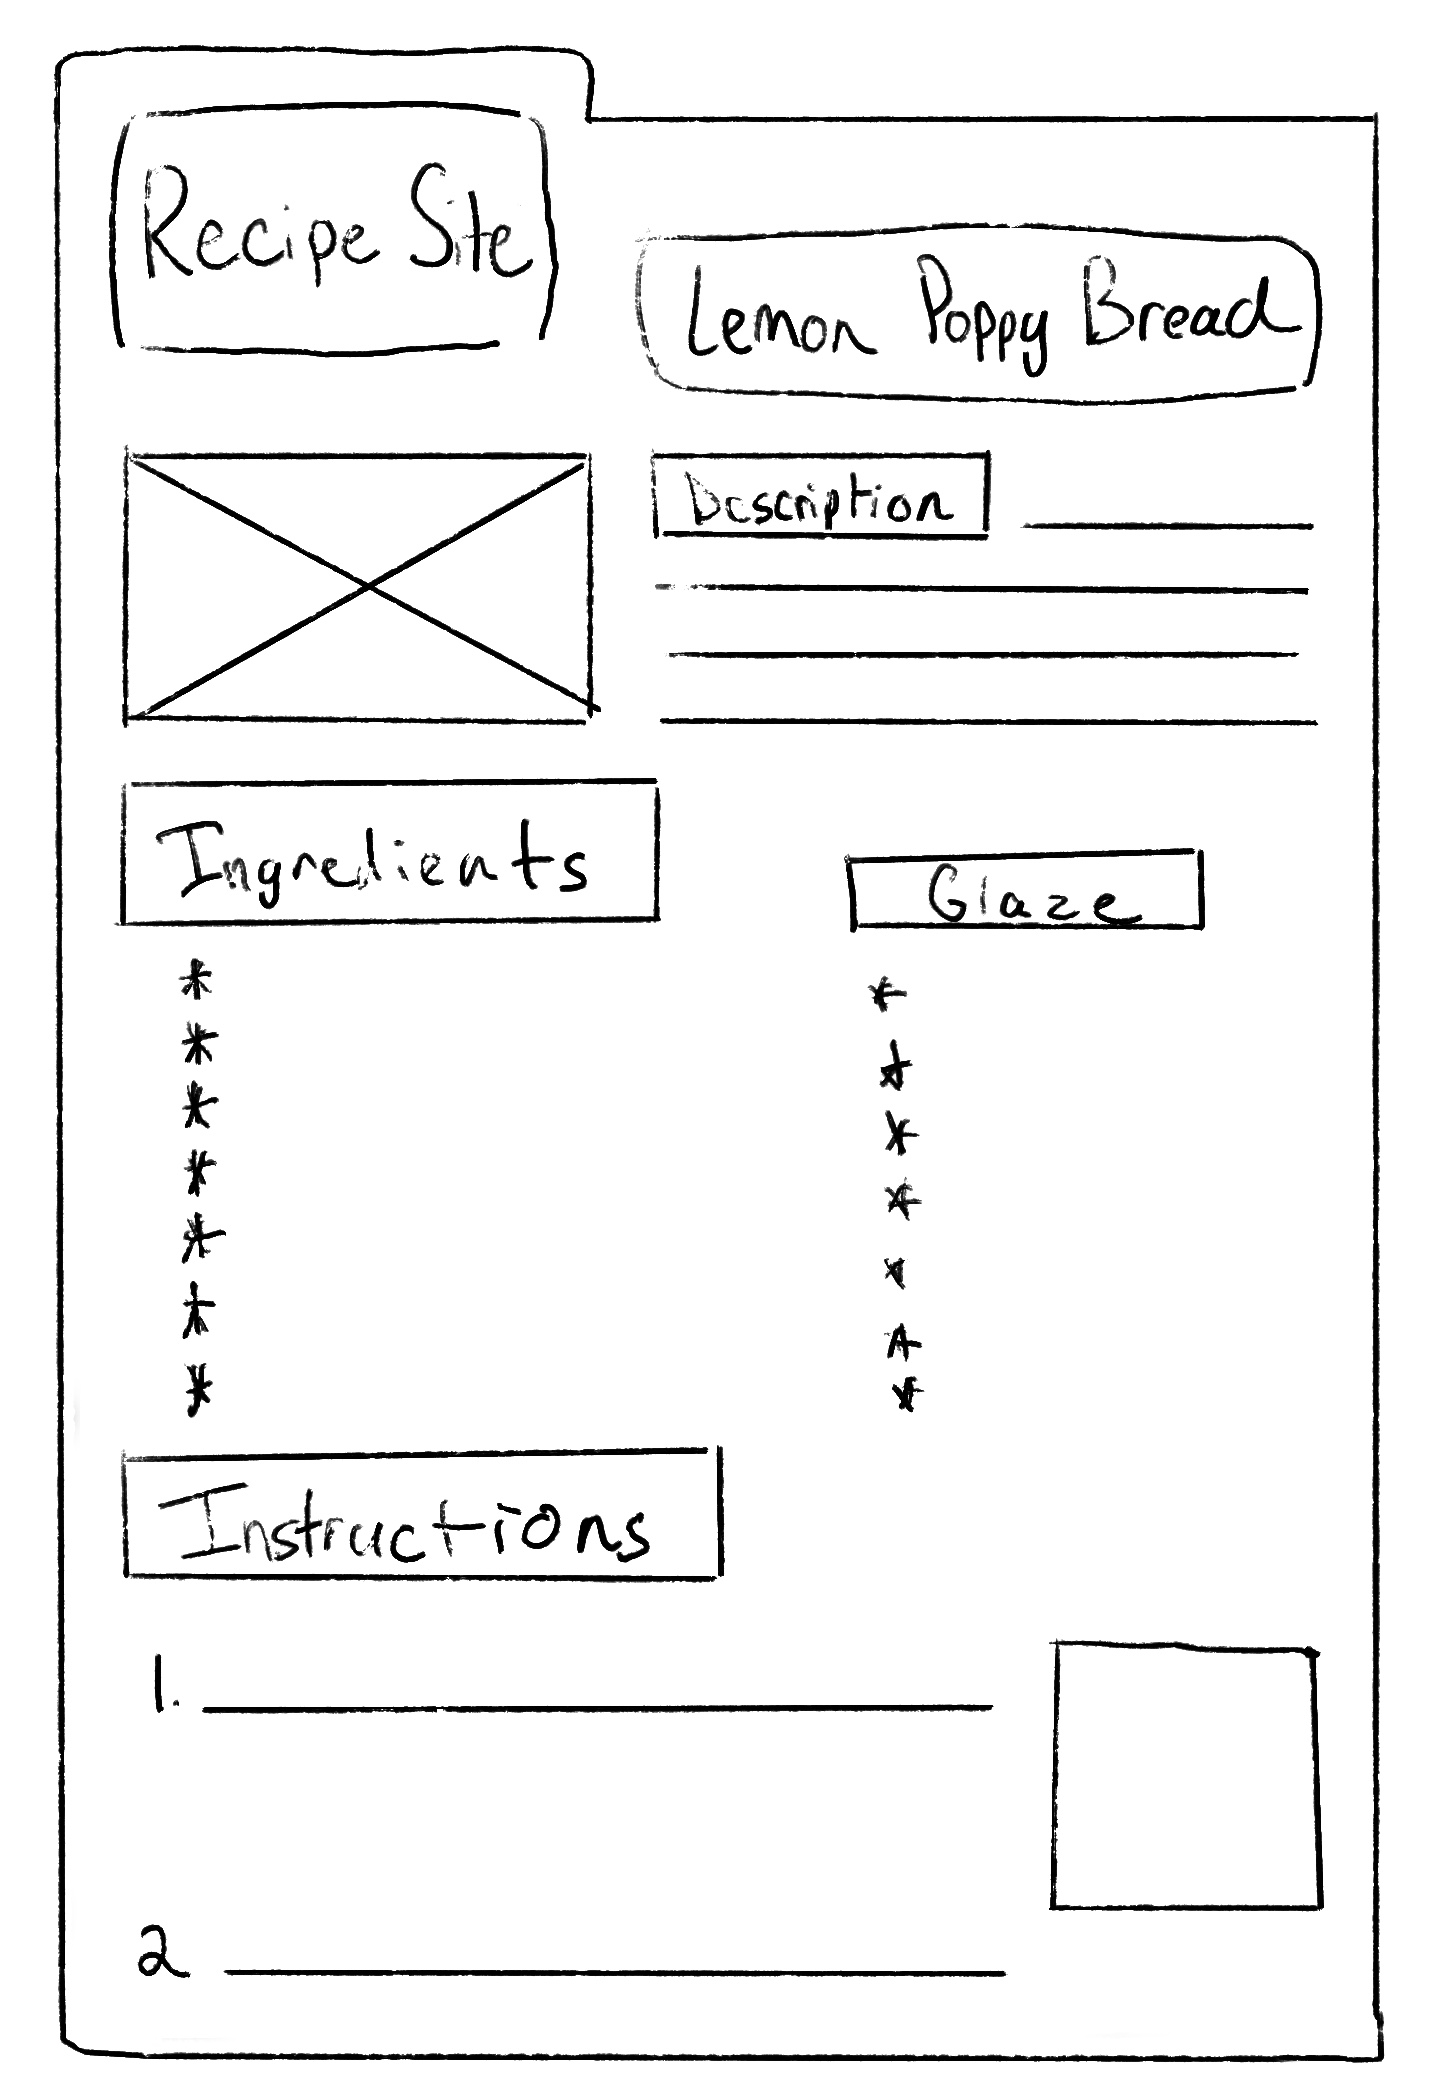 Recipe Site
Lemon Poppy Bread
Description
Ingredients
Glaze
*
*
*
*
*
*
*
*
*
*
*
*
*
*
Instructions
1.
2